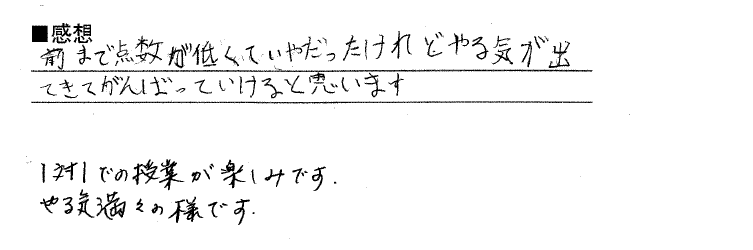 ■感想
前まで点数が低くていやだったけれどやる気が出
てきてがんばっていけると思います
1対1での授業が楽しみです.
やる気満々の様です.